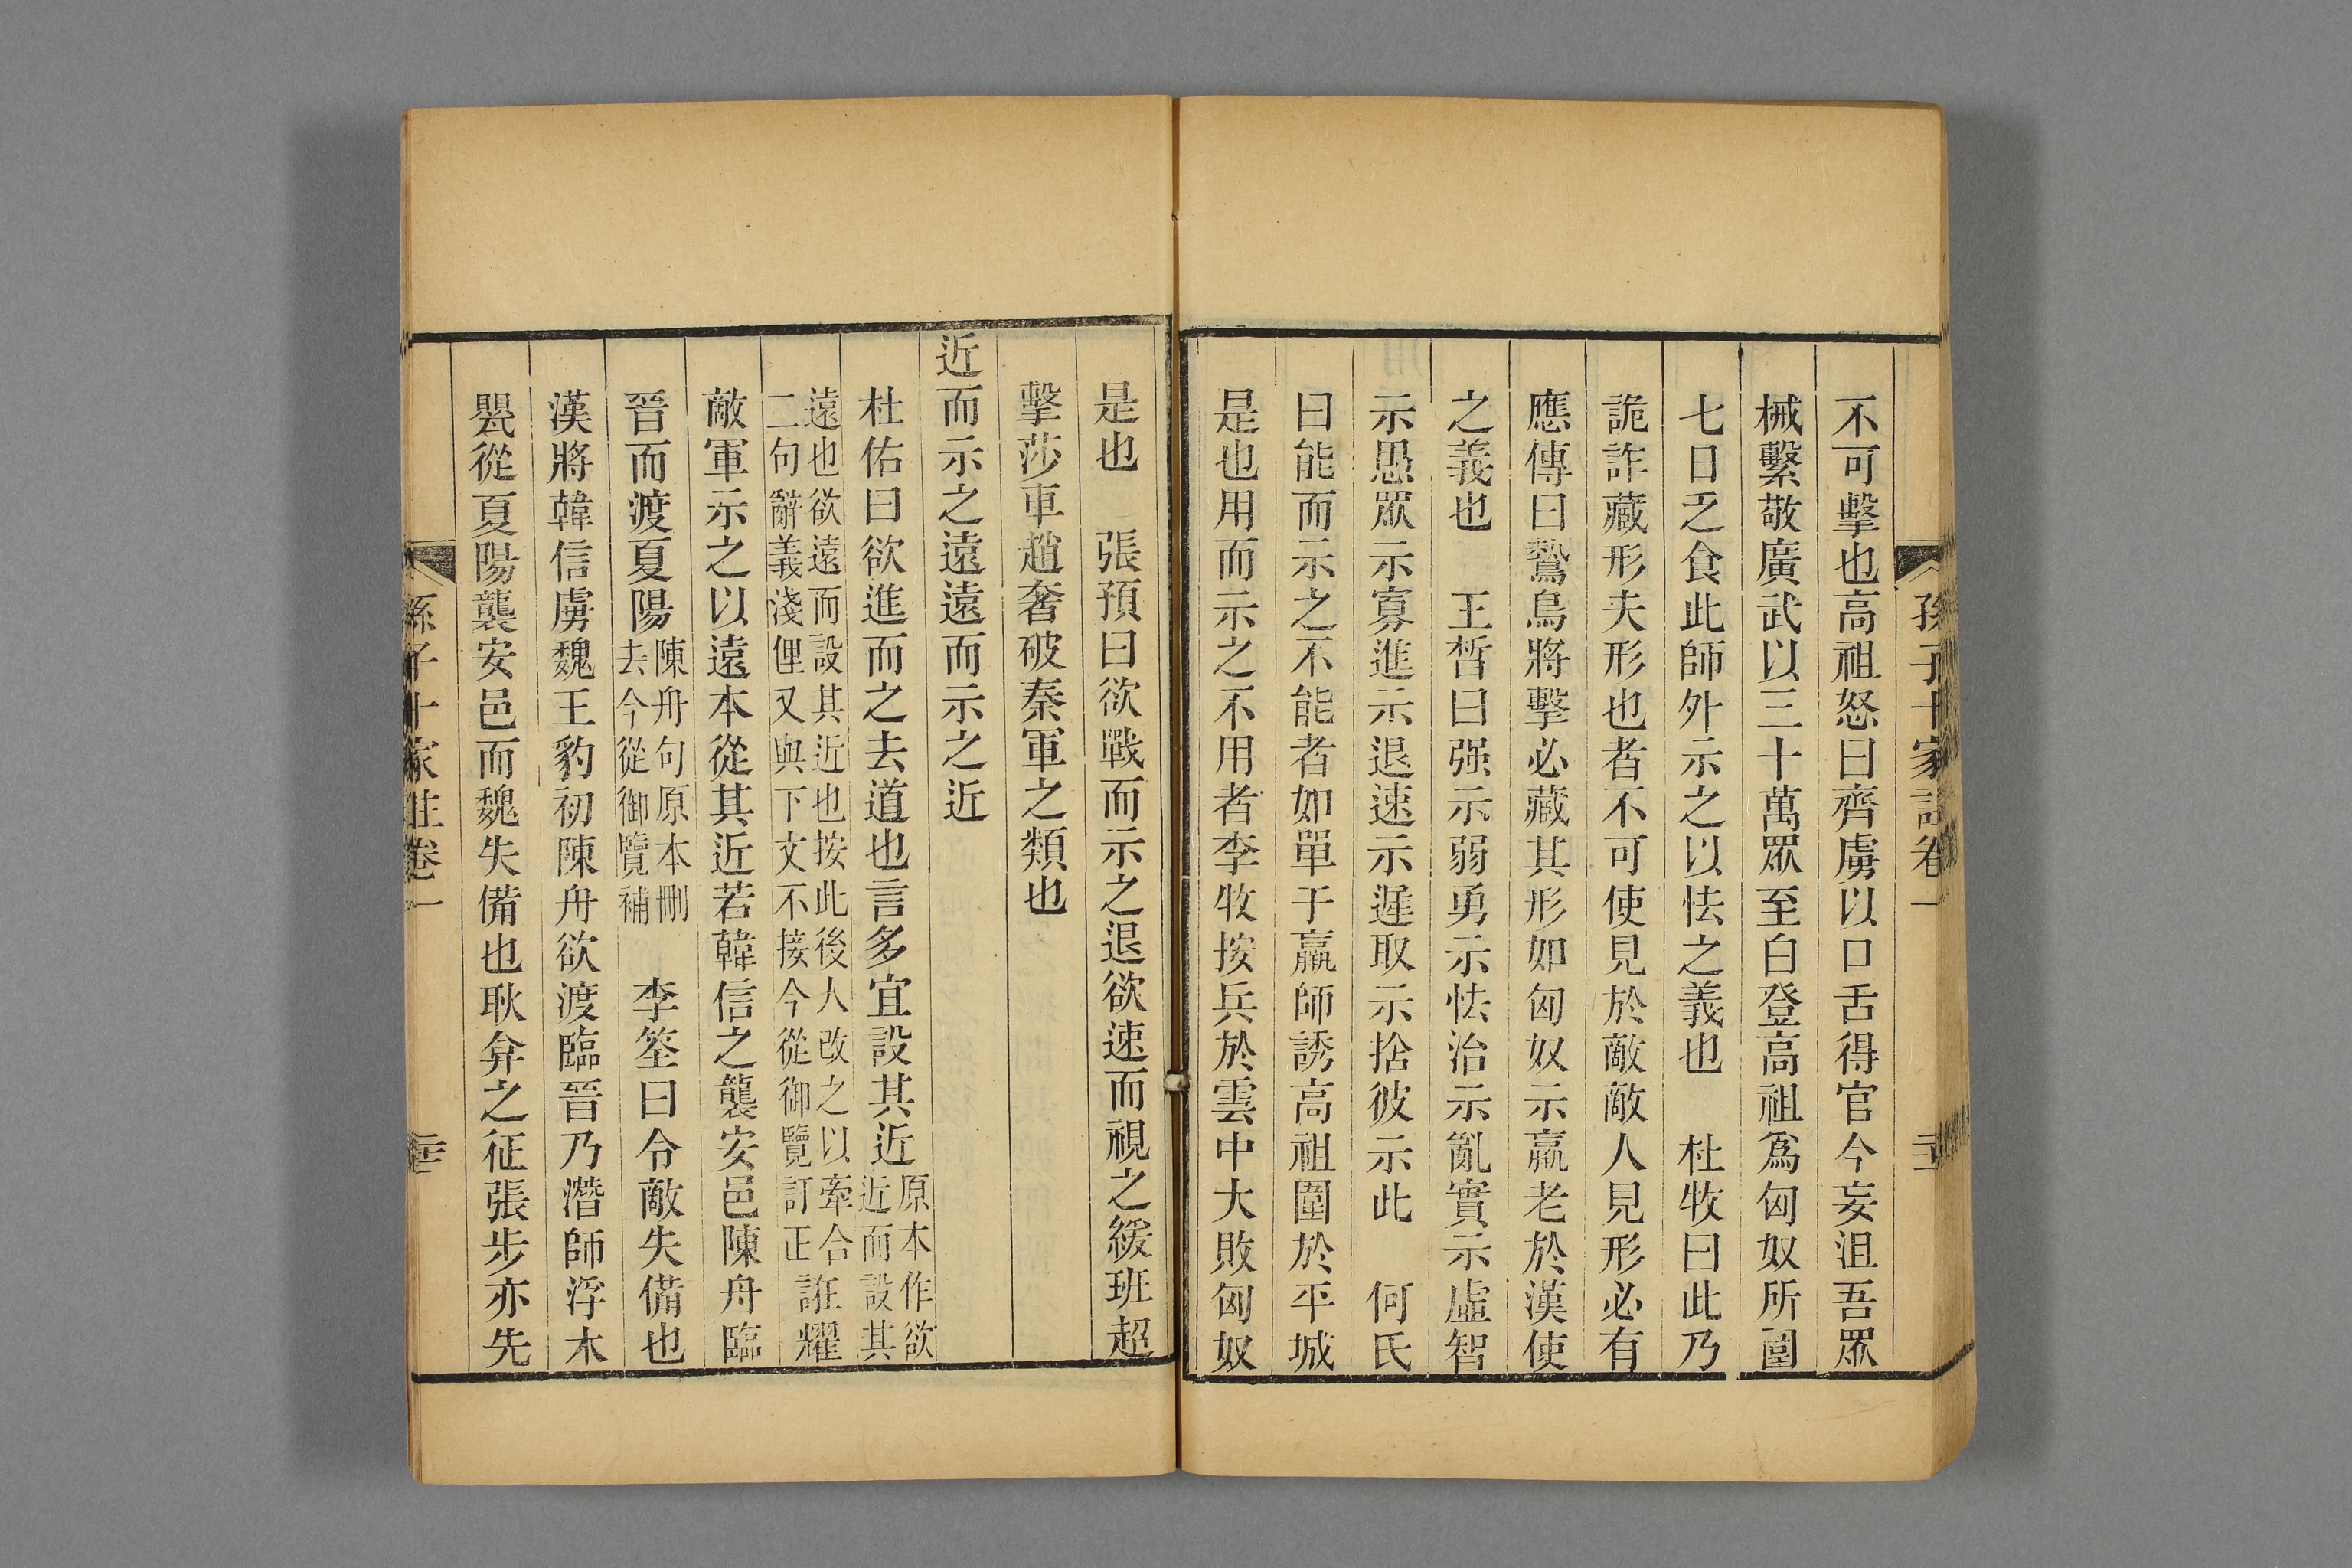 孫子十家註卷一
不可擊也高祖怒曰齊虜以口舌得官今妄沮吾眾
械繫敬廣武以三十萬眾至白登高祖爲匈奴所圍
七日乏食此師外示之以怯之義也　杜牧曰此乃
詭詐藏形夫形也者不可使見於敵敵人見形必有
應傳曰鷙鳥將擊必藏其形如匈奴示羸老於漢使
之義也　王晳曰强示弱勇示怯治示亂實示虛智
示愚眾示寡進示退速示遲取示捨彼示此　何氏
曰能而示之不能者如單于羸師誘高祖圍於平城
是也用而示之不用者李牧按兵於雲中大敗匈奴
是也　張預曰欲戰而示之退欲速而視之緩班超
擊莎車趙奢破秦軍之類也
近而示之遠遠而示之近
杜佑曰欲進而之去道也言多宜設其近原本作欲近而設其
遠也欲遠而設其近也按此後人改之以牽合二句辭義淺俚又與下文不接今從御覽訂正誑耀
敵軍示之以遠本從其近若韓信之襲安邑陳舟臨
晉而渡夏陽陳舟句原本刪去今從御覽補　李筌曰令敵失備也
漢將韓信虜魏王豹初陳舟欲渡臨晉乃潛師浮木
罌從夏陽襲安邑而魏失備也耿弇之征張步亦先
孫子十家註卷一